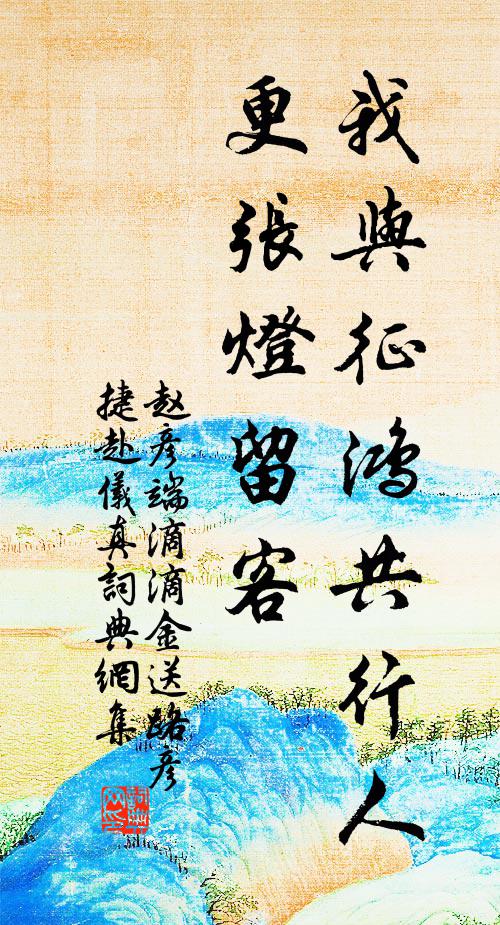 我與征鴻共行人
更張燈留客
赵彦端滴滴金送路彦
捷赴儀真詞典網集